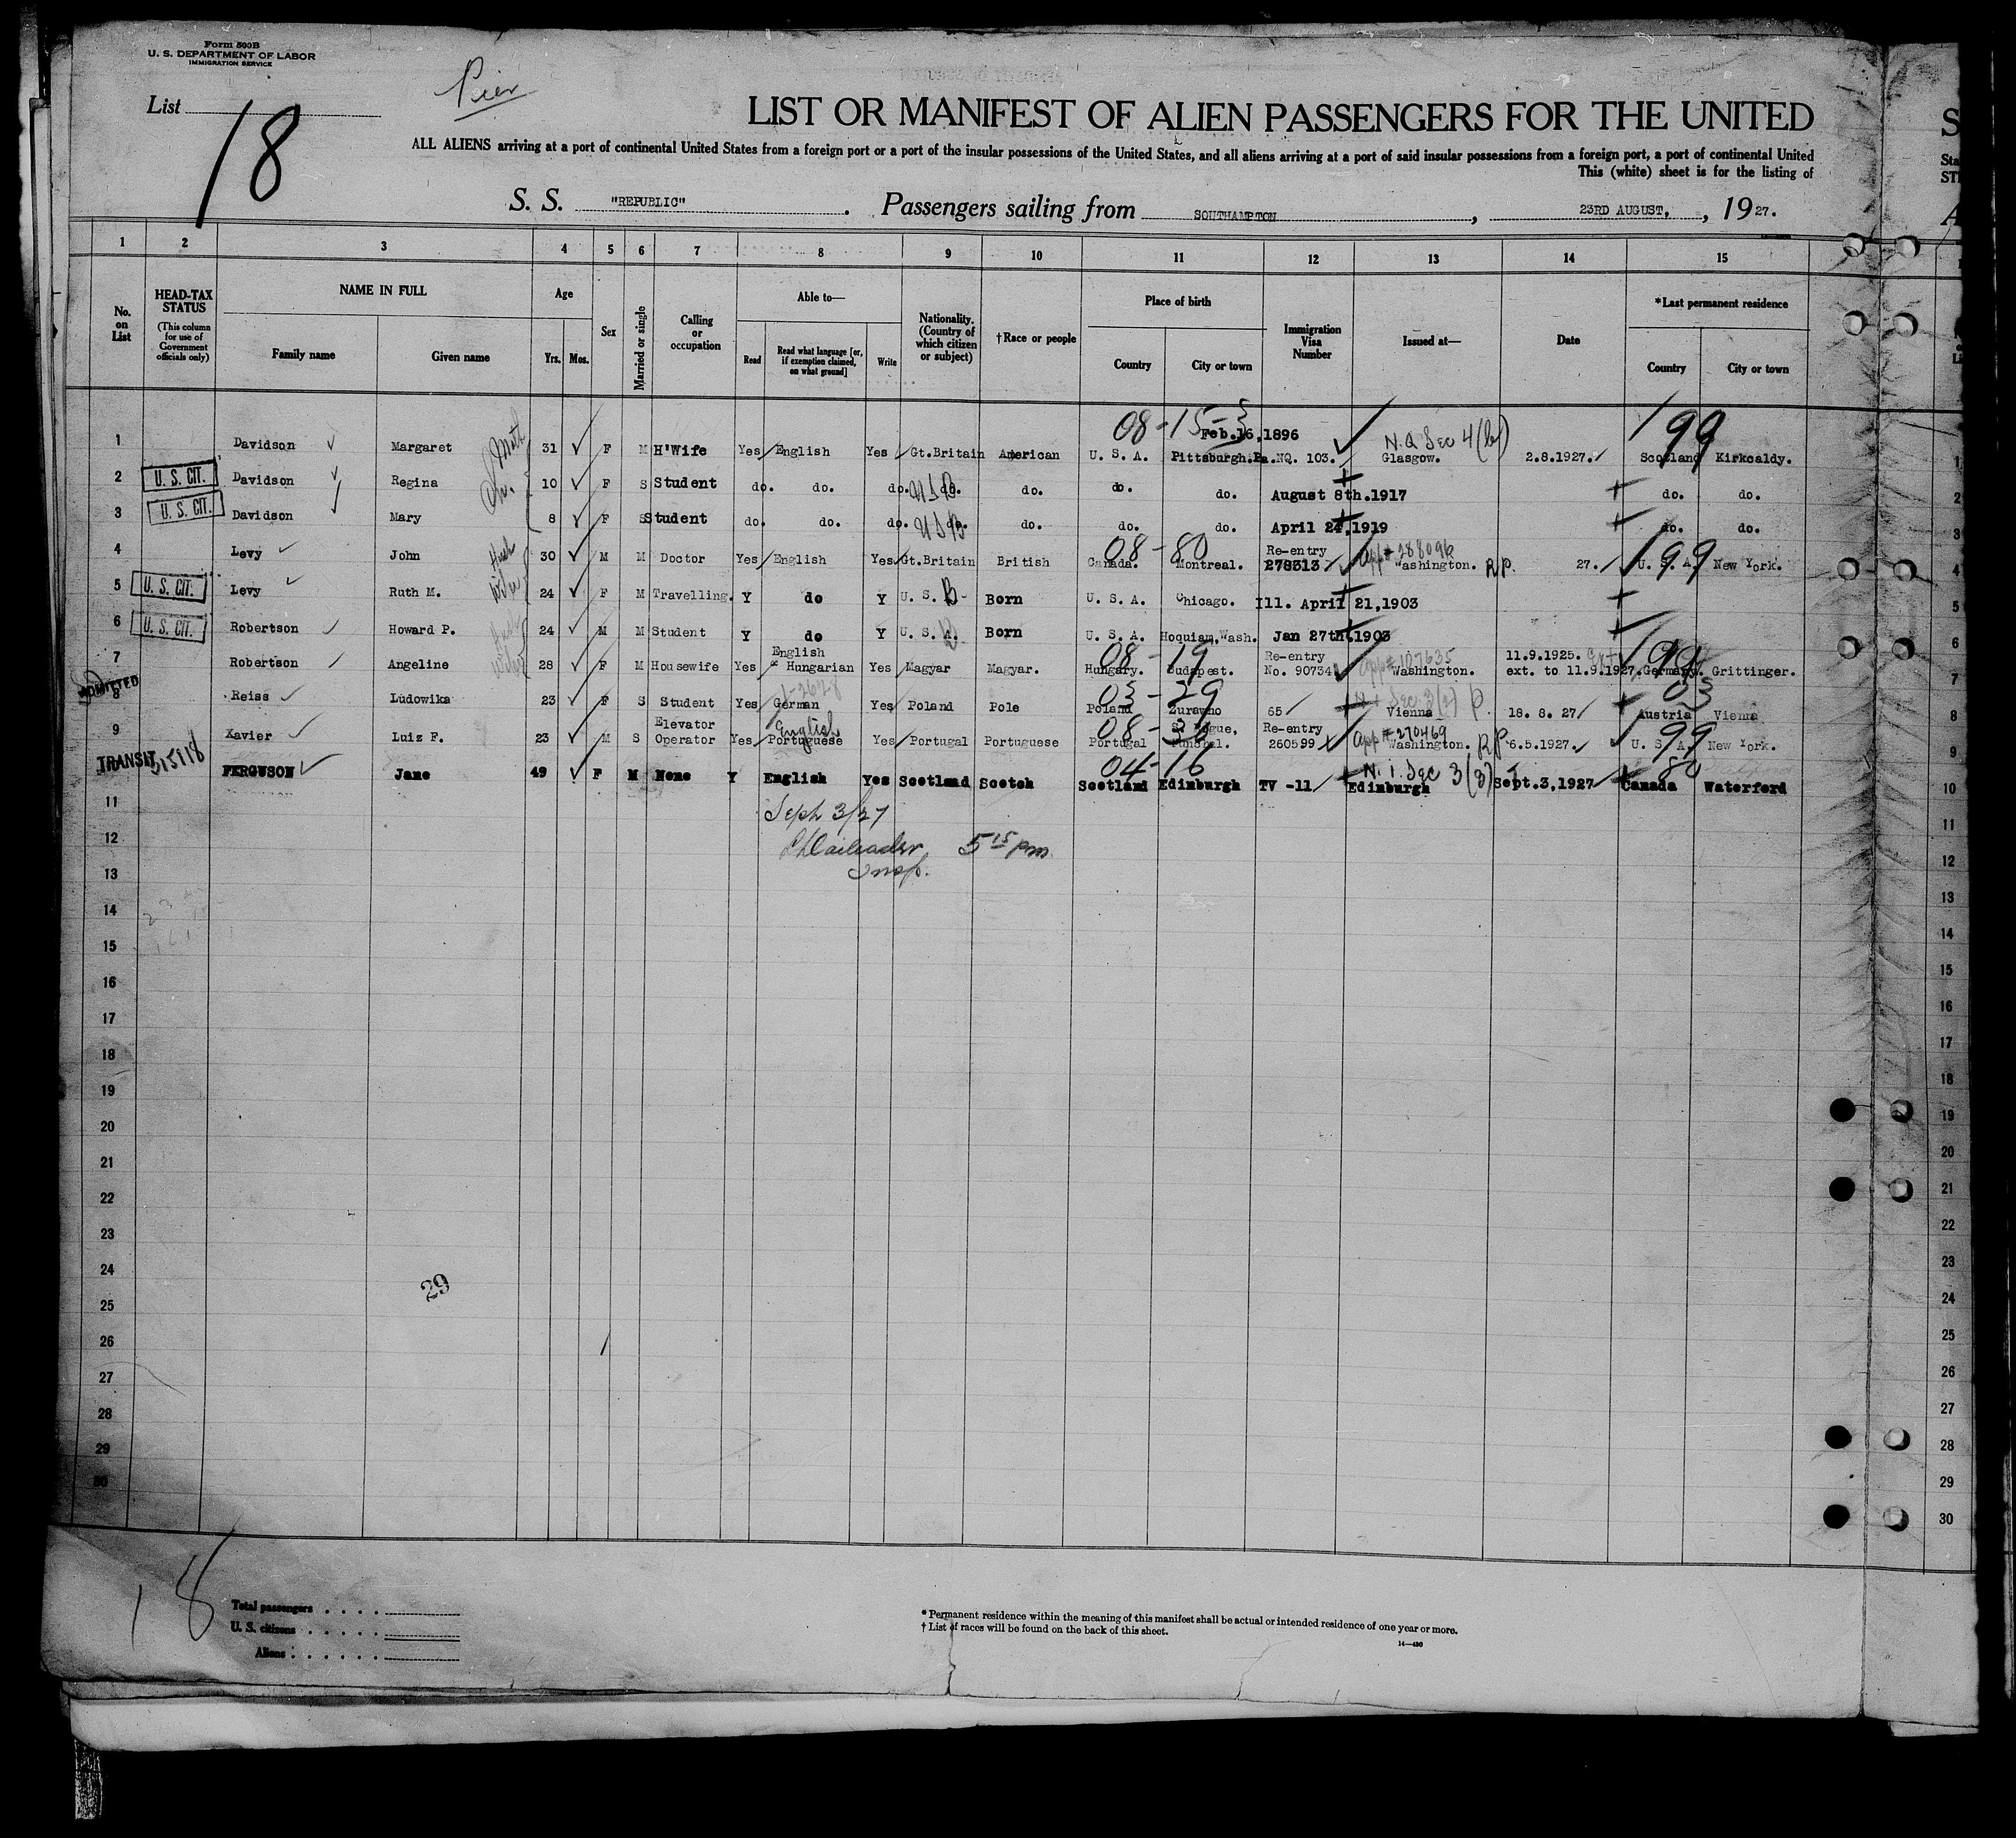 Form 500B
U. S. DEPARTMENT OF LABOR
IMMIGRATION SERVICE
Pier
List
18
LIST OR MANIFEST OF ALIEN PASSENGERS FOR THE UNITED
ALL ALIENS arriving at a port of continental United States from a foreign port or a port of the insular possessions of the United States, and all aliens arriving at a port of said insular possessions from a foreign port, a port of continental United
This (white) sheet is for the listing of
S. S. "REPUBLIC". Passengers sailing from SOUTHAMPTON, 23RD AUGUST, , 1927.
1 2 3 4 5 6 7 8 9 10 11 12 13 14 15
No. on List
HEAD-TAX STATUS
(This column for use of Government officials only)
NAME IN FULL
Family name Given name
Age
Yrs. Mos.
Sex
Married or single
Calling or occupation
Able to—
Read Read what language [or, if exemption claimed, on what ground] Write
Nationality. (Country of which citizen or subject)
†Race or people
Place of birth
Country City or town
Immigration Visa Number
Issued at—
Date
*Last permanent residence
Country City or town
08-15-3 199
Feb.16,1896 N.Q Sec 4(b)
1 Davidson Margaret 31 F M H'Wife Yes English Yes Gt.Britain American U. S. A. Pittsburgh.Pa. NQ. 103. Glasgow. 2.8.1927. Scotland Kirkcaldy.
2 U. S. CIT. Davidson Regina 10 F S Student do. do. do. do. do. do. do. August 8th.1917 do. do.
3 U. S. CIT. Davidson Mary 8 F S Student do. do. do. do. do. do. do. April 24,1919 do. do.
08-80 Re-entry App# 288096 199
4 Levy John 30 M M Doctor Yes English Yes Gt.Britain British Canada. Montreal. 278313. Washington. RP. 27. U. S. A. New York.
5 U. S. CIT. Levy Ruth M. 24 F M Travelling. Y do Y U. S. Born U. S. A. Chicago. Ill. April 21,1903
6 U. S. CIT. Robertson Howard P. 24 M M Student Y do Y U. S. A. Born U. S. A. Hoquiam,Wash. Jan 27th.1903
English 08-19 Re-entry App# 107635 11.9.1925.
7 Robertson Angeline 28 F M Housewife Yes & Hungarian Yes Magyar Magyar. Hungary. Budapest. No. 90734 Washington. ext. to 11.9.1927. Germany. Grittinger.
ADMITTED 03-29 03
8 Reiss Ludowika 23 F S Student Yes German Yes Poland Pole Poland Zurawno 65 Vienna 18. 8. 27 Austria Vienna
Elevator English 08-36 Re-entry App # 270469 199
9 Xavier Luiz F. 23 M S Operator Yes Portuguese Yes Portugal Portuguese Portugal Funchal. 260599 Washington. RP 6.5.1927. U. S. A. New York.
TRANSIT 04-16 N. i. Sec 3(3) 80
FERGUSON Jane 49 F M None Y English Yes Scotland Scotch Scotland Edinburgh TV -11 Edinburgh Sept.3,1927 Canada Waterford
11 Sept 3/27
12 5 15 pm
13 Insp.
14
15
16
17
18
19
20
21
22
23
24
29
25
26
27
28
29
30
1
2
3
4
5
6
7
8
9
10
11
12
13
14
15
16
17
18
19
20
21
22
23
24
25
26
27
28
29
30
18
Total passengers
U. S. citizens
Aliens
* Permanent residence within the meaning of this manifest shall be actual or intended residence of one year or more.
† List of races will be found on the back of this sheet.
14—430